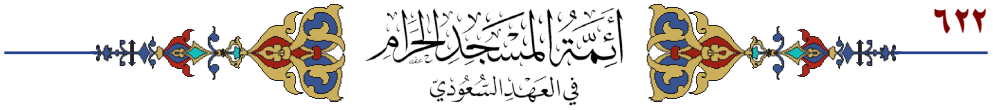 ٦٢٢
أَئِمَّةُ الْمَسْجِدِ الْحَرَامِ
فِي الْعَهْدِ السُّعُودِيّ